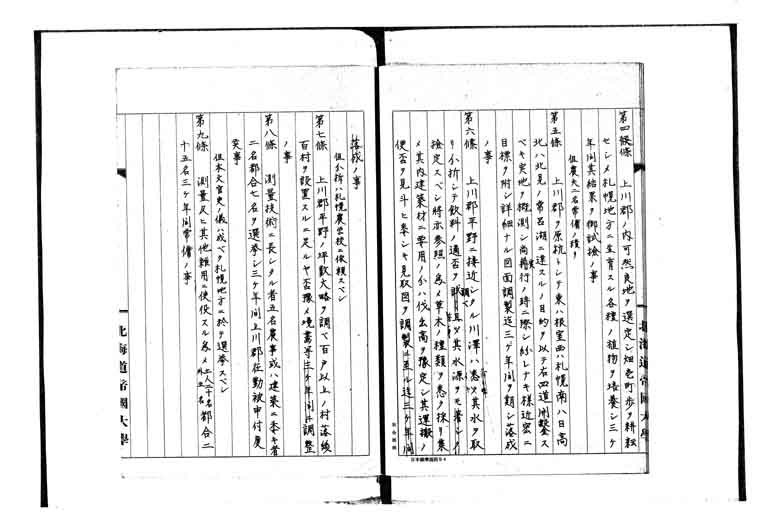 第四條 上川郡ノ内可然良地ヲ選定シ畑壱町歩ヲ耕耘
セシメ札幌地方ニ生育スル各種ノ植物ヲ培養シ三ヶ
年間其結果ヲ御試撿ノ事
但農夫二名常備ノ積リ
第五條 上川郡ヲ原拠トシテ東ハ根室西ハ札幌南ハ日高
北ハ北見ノ常呂湖ニ達スルノ目的ヲ以テ右四道開鑿ス
ベキ実地ヲ概測シ尚施行ノ時ニ際シ紛レナキ様近密ニ
目標ヲ附シ詳細ナル図面調製迄三ヶ年間ヲ期シ落成
ノ事
第六條 上川郡平野ニ接近シタル川澤ハ悉ク其水ヲ取
リ分析シテ飲料ノ適否ヲ調ベ其水源ヲモ
撿定スベシ将亦参照ノ為メ草木ノ種類ヲ悉ク採リ集
メ其内建築材ニ要用ノ分ハ伐出高ヲ豫定シ其運搬ノ
便否ヲ見斗ヒ委シキ見取図ヲ調製ニ至ル迄三ヶ年間
落成ノ事
但分析ハ札幌農学校ニ依頼スベシ
第七條 上川郡平野ノ坪数大略ヲ調ベ百戸以上ノ村落幾
百村ヲ設置スルニ足ルヤ否豫メ境書等三ヶ年間ニ調整
ノ事
第八條 測量技術ニ長シタル者五名農事或ハ建築ニ委キ者
二名都合七名ヲ選挙シ三ヶ年間上川郡在勤被申付度
ノ事
但本文官吏ノ儀ハ成ベク札幌地方ニ於テ選挙スベシ
第九條 測量足ヒ其他雑用ニ使役スル為メ土人十名外ニ五名都合二
十五名三ヶ年間常備ノ事
北海道帝國大學
北海道帝國大學
日本標準規格B4